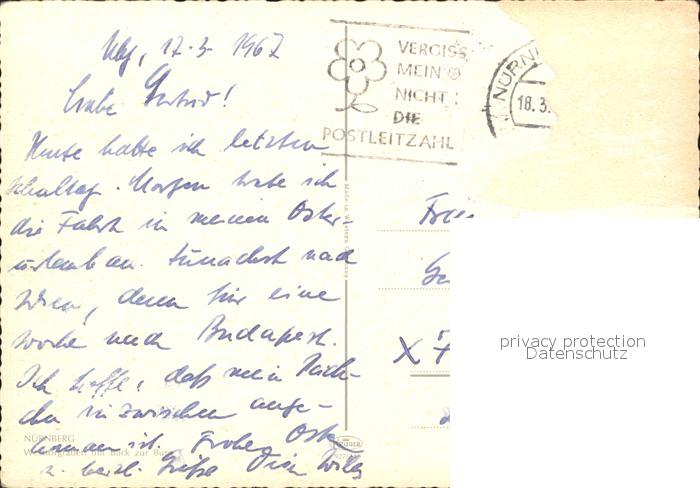 Nbg, 17.3. 1967
Liebe Gertrud!
Heute hatte ich letzten
Schultag. Morgen trete ich
die Fahrt in meinen Oster-
urlaub an. Zunächst nach
Wien, dann für eine
Woche nach Budapest.
Ich hoffe, daß mein Päck-
chen inzwischen ange-
kommen ist. Frohe Ostern
u. herzl. Grüße Dein Willy
VERGISS
MEIN
NICHT
DIE
POSTLEITZAHL
NÜRN
18.3.
Made in Western Germany
Frau
X 7
NÜRNBERG
KRÜGER
privacy protection
Datenschutz